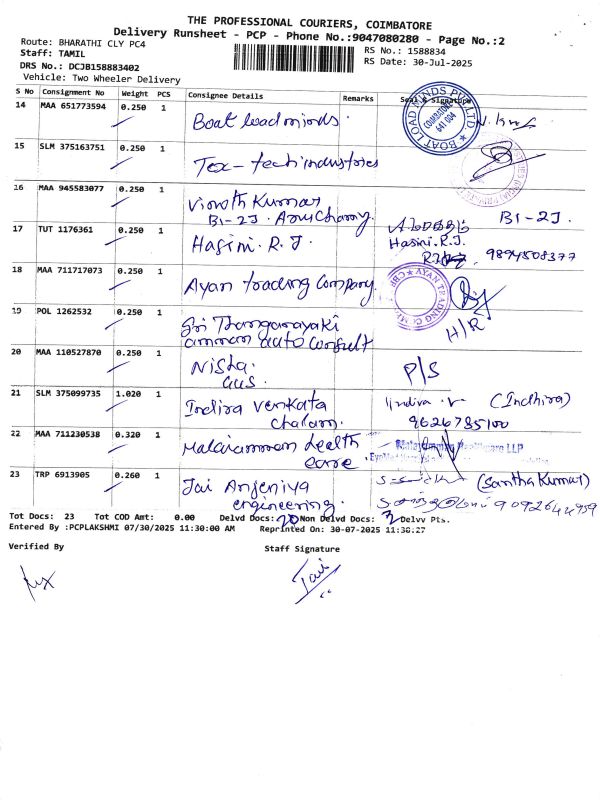 THE PROFESSIONAL COURIERS, COIMBATORE
Delivery Runsheet - PCP - Phone No.:9047080280 - Page No.:2
Route: BHARATHI CLY PC4
RS No.: 1588834
Staff: TAMIL
RS Date: 30-Jul-2025
DRS No.: DCJB158883402
Vehicle: Two Wheeler Delivery
S No Consignment No Weight PCS Consignee Details Remarks Seal & Signature
14 MAA 651773594 0.250 1 Boat loadminds.
BOAT LOAD MINDS PVT LTD COIMBATORE 641 004
15 SLM 375163751 0.250 1 Tex-tech industries
16 MAA 945583077 0.250 1 Vinoth Kumar
B1-2J. B1-2J.
17 TUT 1176361 0.250 1 Hasini.R.J. Hasini.R.J.
9894508377
18 MAA 711717073 0.250 1 Ayan trading Company
AYAN TRADING
H/R
19 POL 1262532 0.250 1 Sri Thanganayaki
amman auto consult
20 MAA 110527870 0.250 1 Nisha. P/S
21 SLM 375099735 1.020 1 Indira venkata (Indhira)
chalam. 9626785100
22 MAA 711230538 0.320 1 Malaiamman health
care
Healthcare LLP
23 TRP 6913905 0.260 1 Jai Anjeniya (Santha Kumar)
engineering.
Tot Docs: 23 Tot COD Amt: 0.00 Delvd Docs: 20 Non Delvd Docs: 3 Delvv Pts.
Entered By :PCPLAKSHMI 07/30/2025 11:30:00 AM Reprinted On: 30-07-2025 11:30:27
Verified By Staff Signature